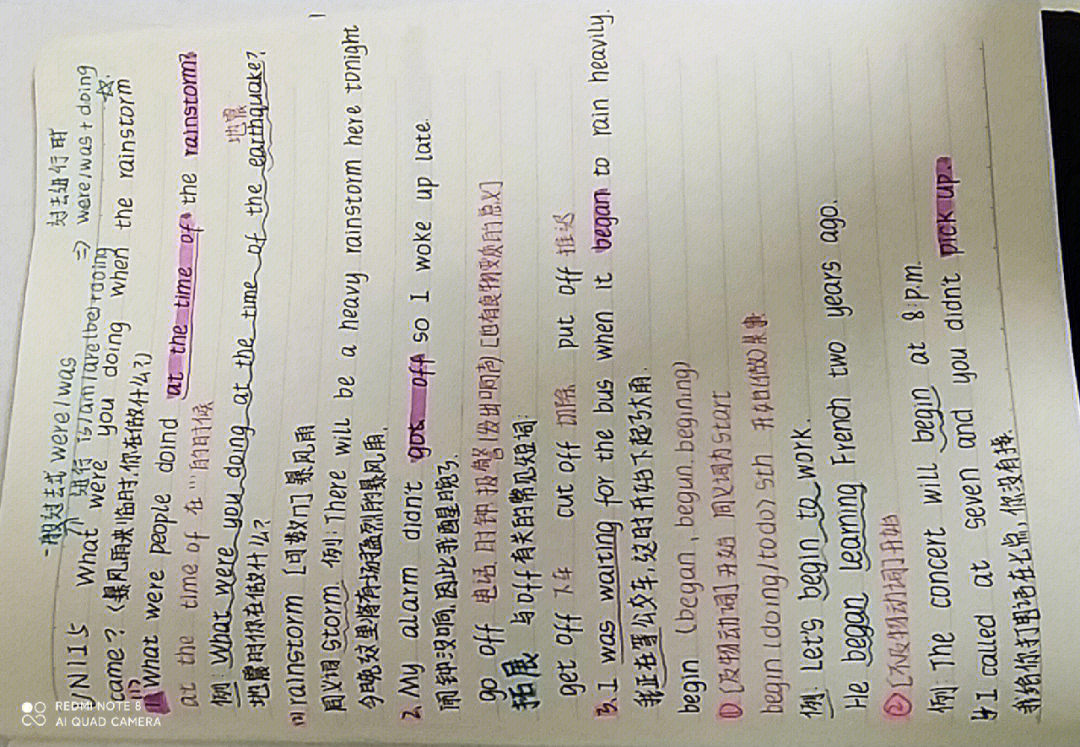 一般过去式 were/was 过去进行时
进行 is/am/are(be)+doing ⇒ were/was+doing
VN1115 What were you doing when the rainstorm
came? (暴风雨来临时,你在做什么?)
(1) What were people doind at the time of the rainstorm?
at the time of 在…的时候
地震
例: What were you doing at the time of the earthquake?
地震时你在做什么?
(1) rainstorm [可数n] 暴风雨
同义词 storm 例: There will be a heavy rainstorm here tonight
今晚这里将有场猛烈的暴风雨.
2. My alarm didn't got off so I woke up late.
闹钟没响,因此我醒晚了.
go off 电话,时钟,报警(发出响声)[也有食物变质的意义]
拓展 与off有关的常见短词:
get off 下车 cut off 切除 put off 推迟
3. I was waiting for the bus when it began to rain heavily.
我正在等公交车,这时开始下起大雨.
begin (began, begun, begining)
① [及物动词]开始 同义词为start
begin (doing/to do) sth 开始(做)某事
例: Let's begin to work.
He began learning French two years ago.
② [不及物动词]开始
例: The concert will begin at 8:p.m.
4. I called at seven and you didn't pick up.
我给你打电话在七点,你没有接.
REDMI NOTE 8
AI QUAD CAMERA